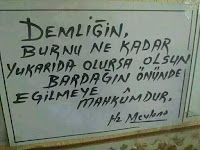 DEMLİĞİN,
BURNU NE KADAR
YUKARIDA OLURSA OLSUN
BARDAĞIN ÖNÜNDE
EGİLMEYE
MAHKÛMDUR.
Hz Mevlana